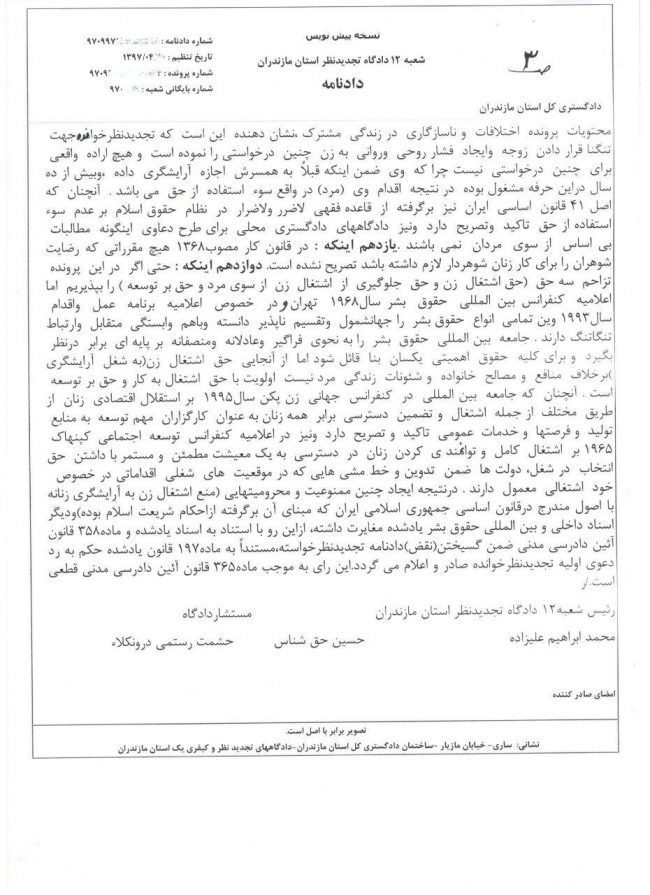 نسخه پیش نویس
شعبه ۱۲ دادگاه تجدیدنظر استان مازندران
دادنامه
شماره دادنامه: ۹۷۰۹۹۷
تاریخ تنظیم: ۱۳۹۷/۰۴/
شماره پرونده: ۹۷۰۹
شماره بایگانی شعبه: ۹۷۰
ص ۳
دادگستری کل استان مازندران
محتویات پرونده اختلافات و ناسازگاری در زندگی مشترک ،نشان دهنده این است که تجدیدنظرخوانده جهت
تنگنا قرار دادن زوجه وایجاد فشار روحی وروانی به زن چنین درخواستی را نموده است و هیچ اراده واقعی
برای چنین درخواستی نیست چرا که وی ضمن اینکه قبلاً به همسرش اجازه آرایشگری داده ،وبیش از ده
سال دراین حرفه مشغول بوده در نتیجه اقدام وی (مرد) در واقع سوء استفاده از حق می باشد . آنچنان که
اصل ۴۱ قانون اساسی ایران نیز برگرفته از قاعده فقهی لاضرر ولاضرار در نظام حقوق اسلام بر عدم سوء
استفاده از حق تاکید وتصریح دارد ونیز دادگاههای دادگستری محلی برای طرح دعاوی اینگونه مطالبات
بی اساس از سوی مردان نمی باشند .یازدهم اینکه : در قانون کار مصوب۱۳۶۸ هیچ مقرراتی که رضایت
شوهران را برای کار زنان شوهردار لازم داشته باشد تصریح نشده است. دوازدهم اینکه : حتی اگر در این پرونده
تزاحم سه حق (حق اشتغال زن و حق جلوگیری از اشتغال زن از سوی مرد و حق بر توسعه ) را بپذیریم اما
اعلامیه کنفرانس بین المللی حقوق بشر سال۱۹۶۸ تهران و در خصوص اعلامیه برنامه عمل واقدام
سال۱۹۹۳ وین تمامی انواع حقوق بشر را جهانشمول وتقسیم ناپذیر دانسته وباهم وابستگی متقابل وارتباط
تنگاتنگ دارند . جامعه بین المللی حقوق بشر را به نحوی فراگیر وعادلانه ومنصفانه بر پایه ای برابر درنظر
بگیرد و برای کلیه حقوق اهمیتی یکسان بنا قائل شود اما از آنجایی حق اشتغال زن(به شغل آرایشگری
)برخلاف منافع و مصالح خانواده و شئونات زندگی مرد نیست اولویت با حق اشتغال به کار و حق بر توسعه
است . آنچنان که جامعه بین المللی در کنفرانس جهانی زن پکن سال۱۹۹۵ بر استقلال اقتصادی زنان از
طریق مختلف از جمله اشتغال و تضمین دسترسی برابر همه زنان به عنوان کارگزاران مهم توسعه به منابع
تولید و فرصتها و خدمات عمومی تاکید و تصریح دارد ونیز در اعلامیه کنفرانس توسعه اجتماعی کپنهاک
۱۹۶۵ بر اشتغال کامل و توانمند ی کردن زنان در دسترسی به یک معیشت مطمئن و مستمر با داشتن حق
انتخاب در شغل، دولت ها ضمن تدوین و خط مشی هایی که در موقعیت های شغلی اقداماتی در خصوص
خود اشتغالی معمول دارند . درنتیجه ایجاد چنین ممنوعیت و محرومیتهایی (منع اشتغال زن به آرایشگری زنانه
با اصول مندرج درقانون اساسی جمهوری اسلامی ایران که مبنای آن برگرفته ازاحکام شریعت اسلام بوده)ودیگر
اسناد داخلی و بین المللی حقوق بشر یادشده مغایرت داشته، ازاین رو با استناد به اسناد یادشده و ماده۳۵۸ قانون
آئین دادرسی مدنی ضمن گسیختن(نقض)دادنامه تجدیدنظرخواسته،مستنداً به ماده۱۹۷ قانون یادشده حکم به رد
دعوی اولیه تجدیدنظرخوانده صادر و اعلام می گردد.این رای به موجب ماده۳۶۵ قانون آئین دادرسی مدنی قطعی
است./ر
رئیس شعبه۱۲ دادگاه تجدیدنظر استان مازندران مستشاردادگاه
محمد ابراهیم علیزاده حسین حق شناس حشمت رستمی درونکلاء
امضای صادر کننده
تصویر برابر با اصل است.
نشانی: ساری- خیابان مازیار -ساختمان دادگستری کل استان مازندران-دادگاههای تجدید نظر و کیفری یک استان مازندران